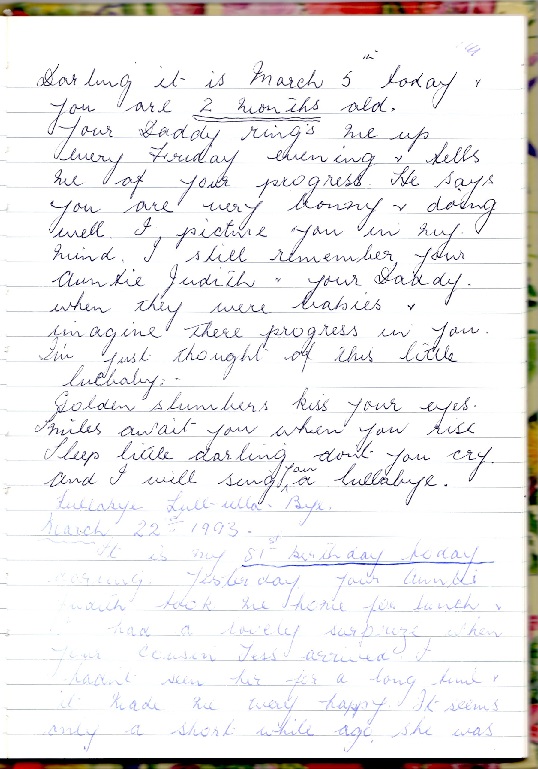 Darling it is March 5th today &
you are 2 months old.
Your Daddy rings me up
every Friday evening & tells
me of your progress. He says
you are very bonny & doing
well. I picture you in my
mind. I still remember your
Auntie Judith & your Daddy.
when they were babies &
imagine there progress in you.
I'm just thought of this little
lullaby:-
Golden slumbers kiss your eyes.
Smiles await you when you rise
Sleep little darling dont you cry.
and I will sing you a lullabye.
Lullabye Lull-ulla-Bye.
March 22nd 1993.
It is my 81st birthday today
morning. Yesterday your Auntie
Judith took me home for lunch &
I had a lovely surprize when
your Cousin Tess arrived I
hadn't seen her for a long time &
it made me very happy. It seems
only a short while ago, she was